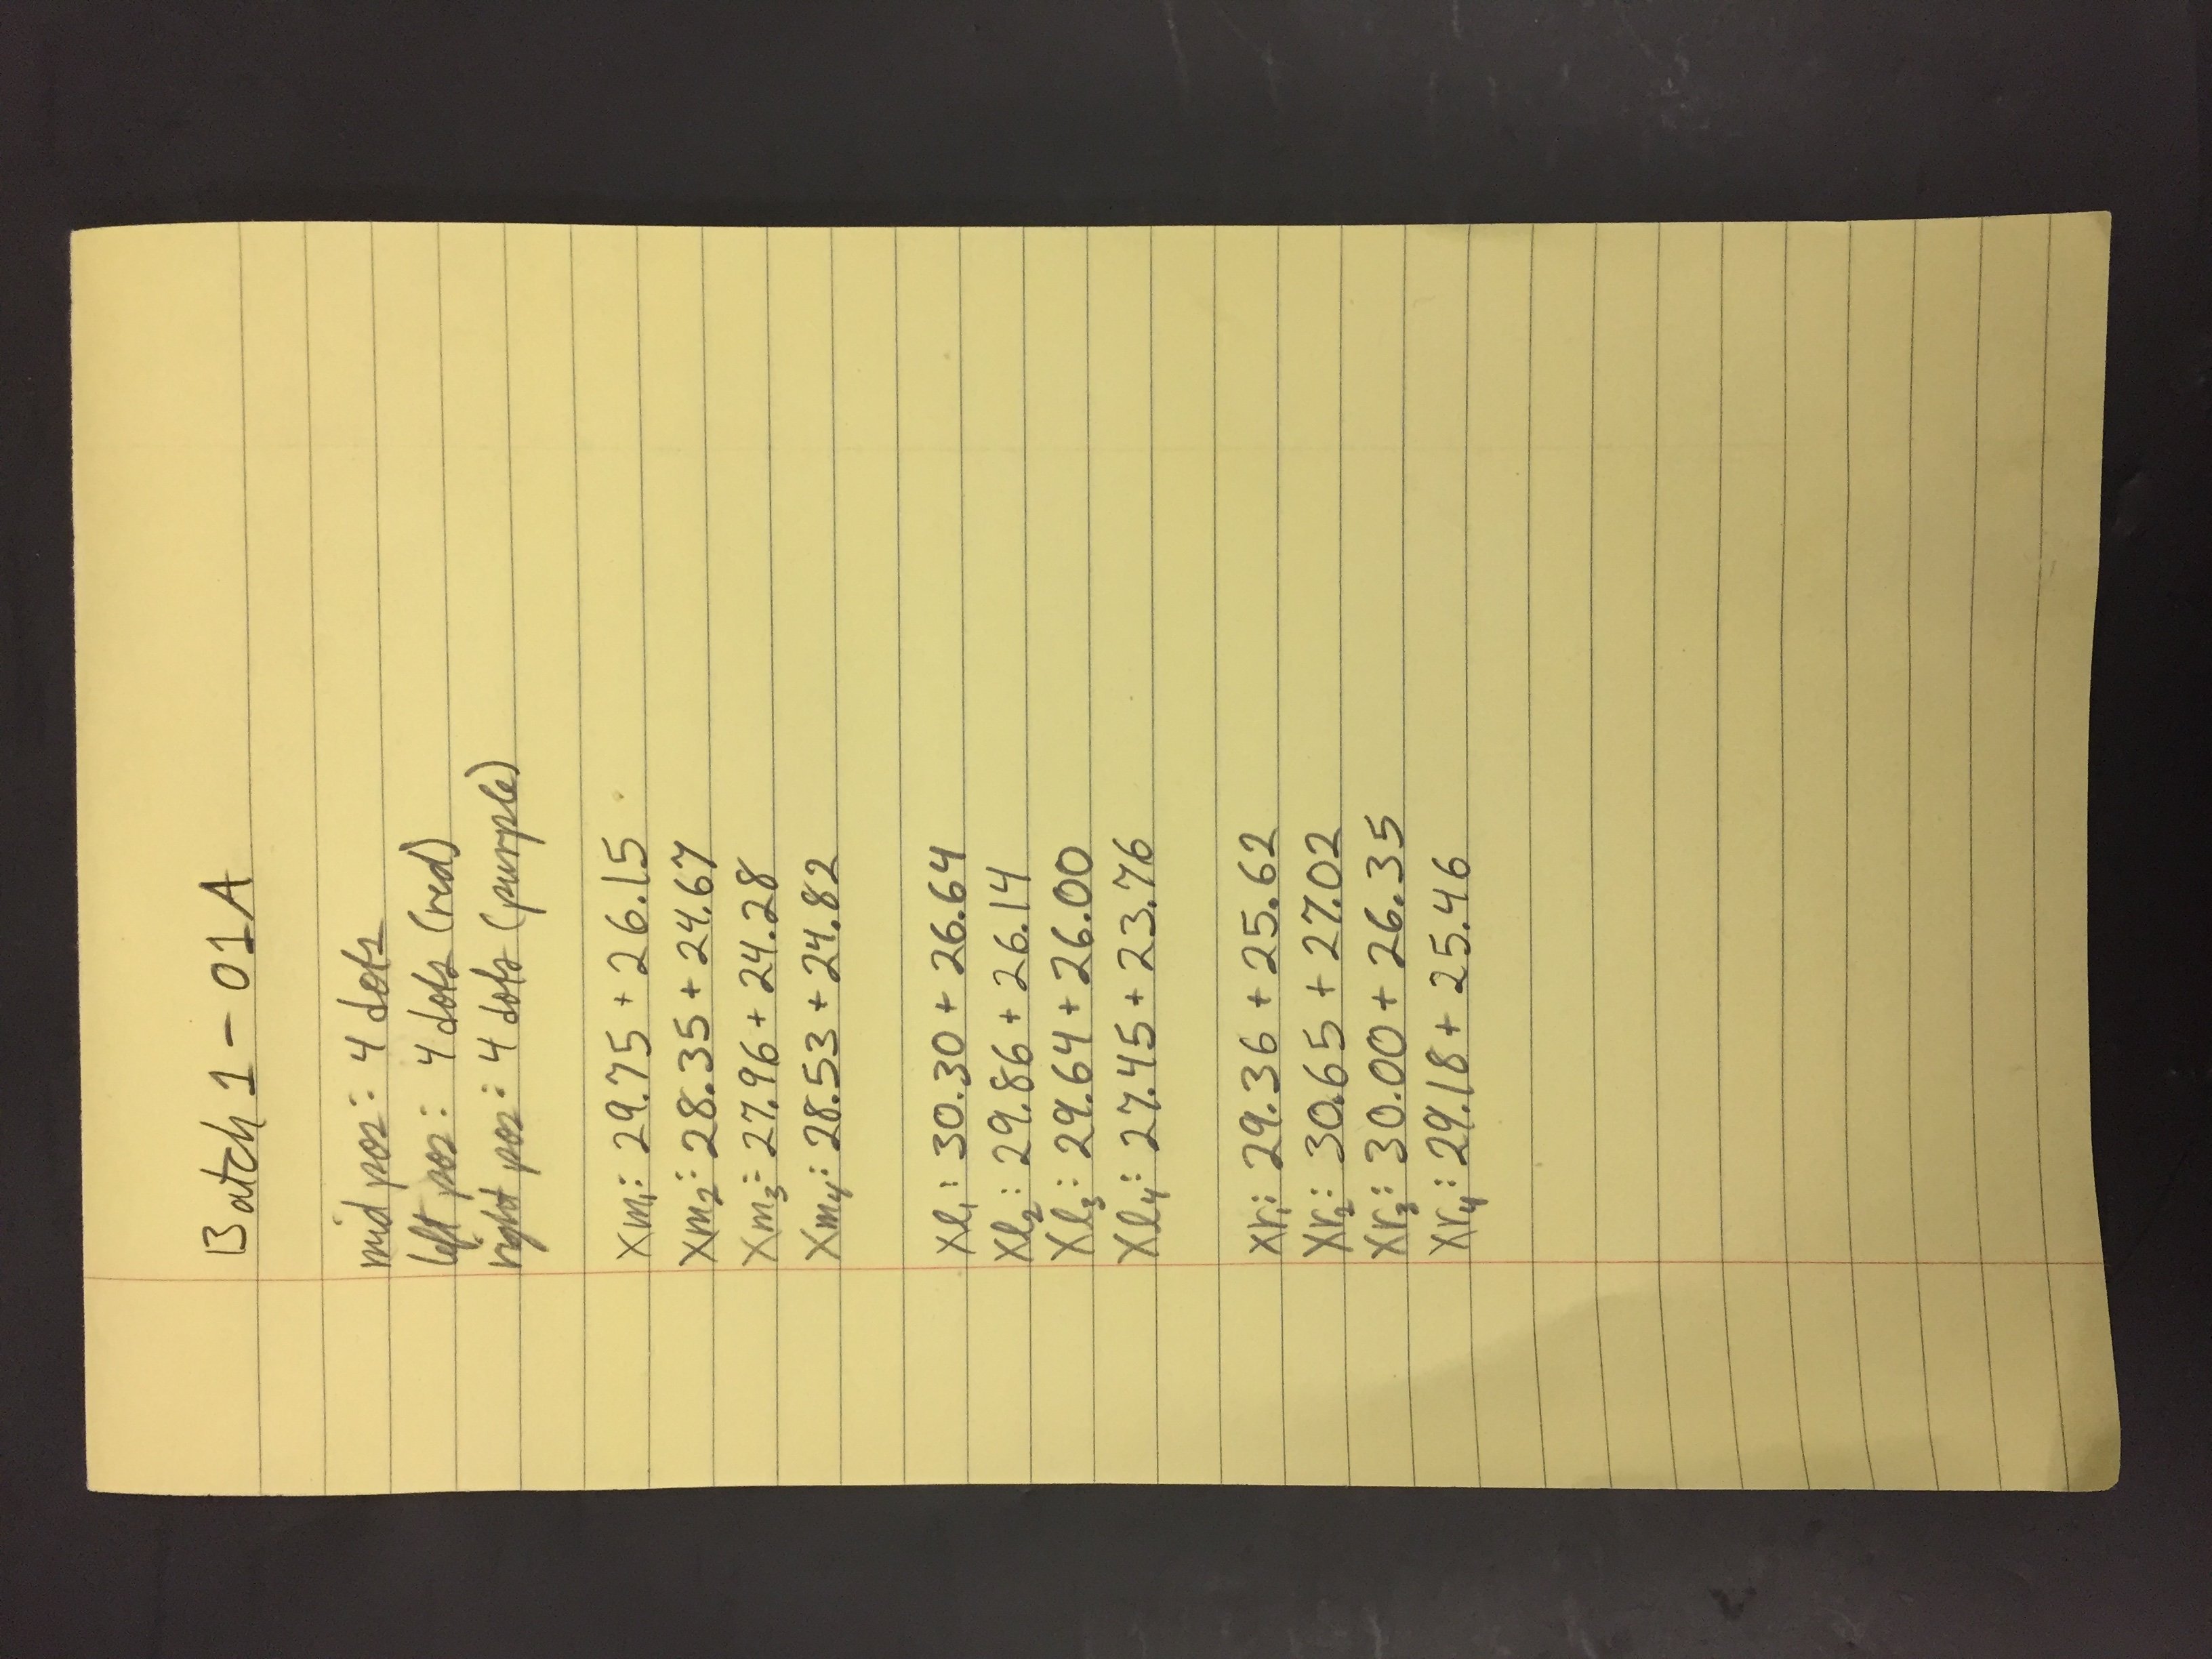 Batch 1 - 01A
mid pos: 4 dots
left pos: 4 dots (red)
right pos: 4 dots (purple)
Xm₁: 29.75 + 26.15
Xm₂: 28.35 + 24.67
Xm₃: 27.96 + 24.28
Xm₄: 28.53 + 24.82
Xl₁: 30.30 + 26.64
Xl₂: 29.86 + 26.14
Xl₃: 29.64 + 26.00
Xl₄: 27.45 + 23.76
Xr₁: 29.36 + 25.62
Xr₂: 30.65 + 27.02
Xr₃: 30.00 + 26.35
Xr₄: 29.18 + 25.46